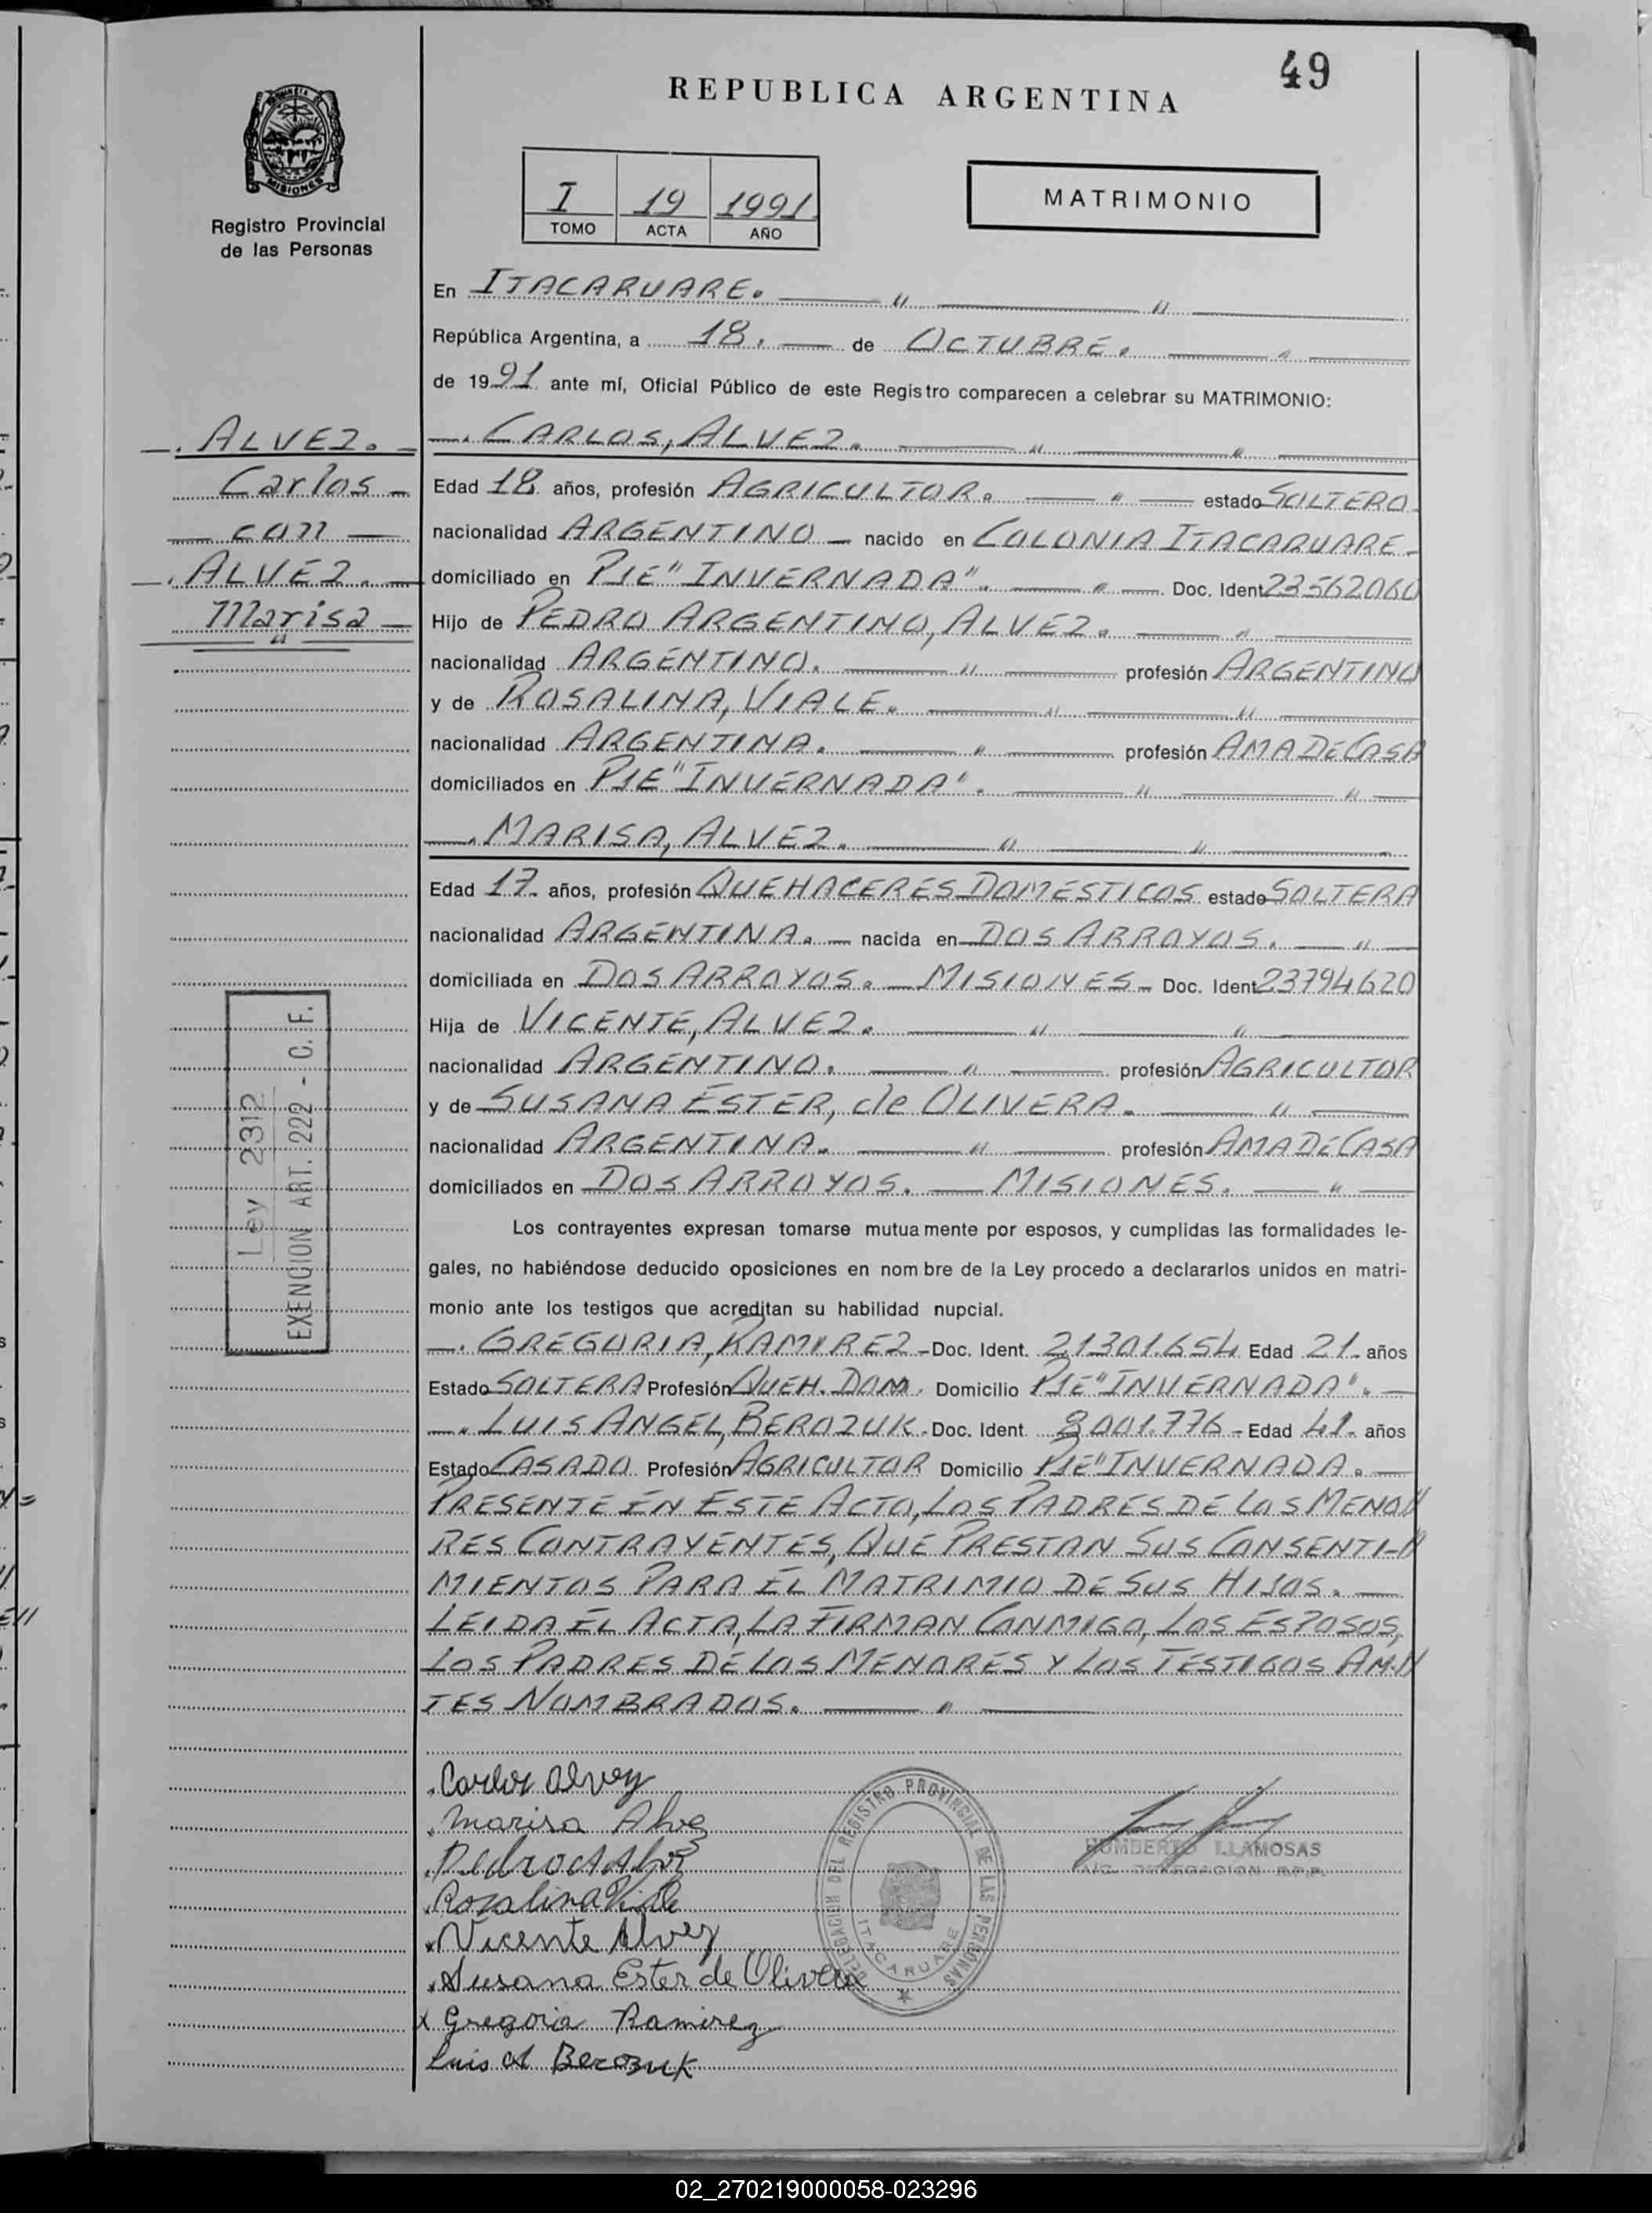 49
REPUBLICA ARGENTINA
PROVINCIA DE
MISIONES
Registro Provincial
de las Personas
I 19 1991
TOMO ACTA AÑO
MATRIMONIO
En ITACARUARE. — " — " —
República Argentina, a 18. — de OCTUBRE. — " —
de 1991 ante mí, Oficial Público de este Registro comparecen a celebrar su MATRIMONIO:
—. ALVEZ. —
Carlos —
— con —
—. ALVEZ. —
Marisa —
— " —
—. CARLOS, ALVEZ. — " — " —
Edad 18 años, profesión AGRICULTOR. — " — estado SOLTERO
nacionalidad ARGENTINO — nacido en COLONIA ITACARUARE-
domiciliado en PJE "INVERNADA". — " — Doc. Ident 23562060
Hijo de PEDRO ARGENTINO, ALVEZ. — " —
nacionalidad ARGENTINO. — " — profesión ARGENTINO
y de ROSALINA, VIALE. — " — " —
nacionalidad ARGENTINA. — " — profesión AMA DE CASA
domiciliados en PJE "INVERNADA". — " — " —
—. MARISA, ALVEZ. — " — " —
Edad 17 años, profesión QUEHACERES DOMESTICOS estado SOLTERA
nacionalidad ARGENTINA. — nacida en DOS ARROYOS. — " —
domiciliada en DOS ARROYOS. — MISIONES — Doc. Ident 23794620
Hija de VICENTE, ALVEZ. — " — " —
nacionalidad ARGENTINO. — " — profesión AGRICULTOR
y de SUSANA ESTER, de OLIVERA. — " —
nacionalidad ARGENTINA. — " — profesión AMA DE CASA
domiciliados en DOS ARROYOS. — MISIONES. — " —
Ley 2312
EXENCION ART. 222 - C. F.
Los contrayentes expresan tomarse mutuamente por esposos, y cumplidas las formalidades le-
gales, no habiéndose deducido oposiciones en nombre de la Ley procedo a declararlos unidos en matri-
monio ante los testigos que acreditan su habilidad nupcial.
—. GREGORIA, RAMIREZ - Doc. Ident. 21301.654 Edad 21 años
Estado SOLTERA Profesión QUEH. DOM. Domicilio PJE "INVERNADA". —
—. LUIS ANGEL, BEROZUK. Doc. Ident. 8001.776 - Edad 41 años
Estado CASADO Profesión AGRICULTOR Domicilio PJE "INVERNADA. —
PRESENTE EN ESTE ACTO, LOS PADRES DE LOS MENO//
RES CONTRAYENTES, QUE PRESTAN SUS CONSENTI-//
MIENTOS PARA EL MATRIMIO DE SUS HIJOS. —
LEIDA EL ACTA, LA FIRMAN CONMIGO, LOS ESPOSOS,
LOS PADRES DE LOS MENORES Y LOS TESTIGOS AN.//
TES NOMBRADOS. — " —
Carlos Alvez
Marisa Alvez
Pedro A Alvez
Rozalina Viale
Vicente Alvez
Susana Ester de Olivera
x Gregoria Ramirez
Luis A Berozuk
DELEGACION DEL REGISTRO PROVINCIAL DE LAS PERSONAS
ITACARUARE
HUMBERTO LLAMOSAS
A/C. DELEGACION R.P.P.
02_270219000058-023296